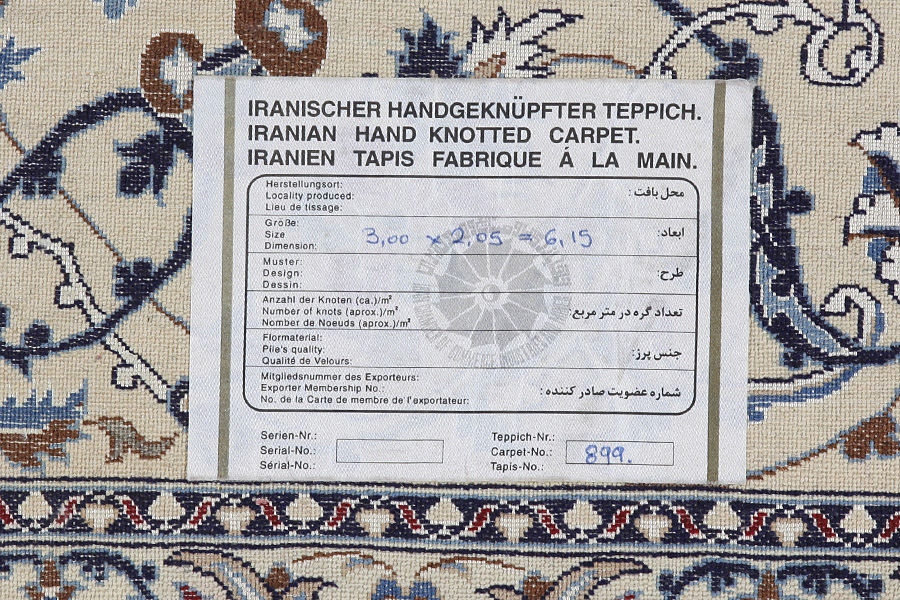 IRANISCHER HANDGEKNÜPFTER TEPPICH.
IRANIAN HAND KNOTTED CARPET.
IRANIEN TAPIS FABRIQUE Á LA MAIN.
Herstellungsort:
Locality produced: محل بافت:
Lieu de tissage:
Größe:
Size 3,00 x 2,05 = 6,15 ابعاد:
Dimension:
Muster:
Design: طرح:
Dessin:
Anzahl der Knoten (ca.)/m²
Number of knots (aprox.)/m² تعداد گره در متر مربع:
Nomber de Noeuds (aprox.)/m²
Flormaterial:
Pile's quality: جنس پرز:
Qualité de Velours:
Mitgliedsnummer des Exporteurs:
Exporter Membership No.: شماره عضویت صادر کننده:
No. de la Carte de membre de l'exportateur:
Serien-Nr.: Teppich-Nr.:
Serial-No.: Carpet-No.: 899.
Sérial-No.: Tapis-No.: